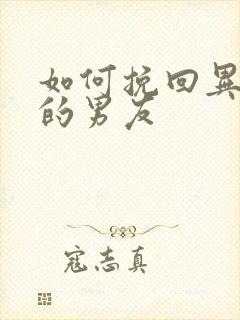 如何挽回异
的男友
寇志真